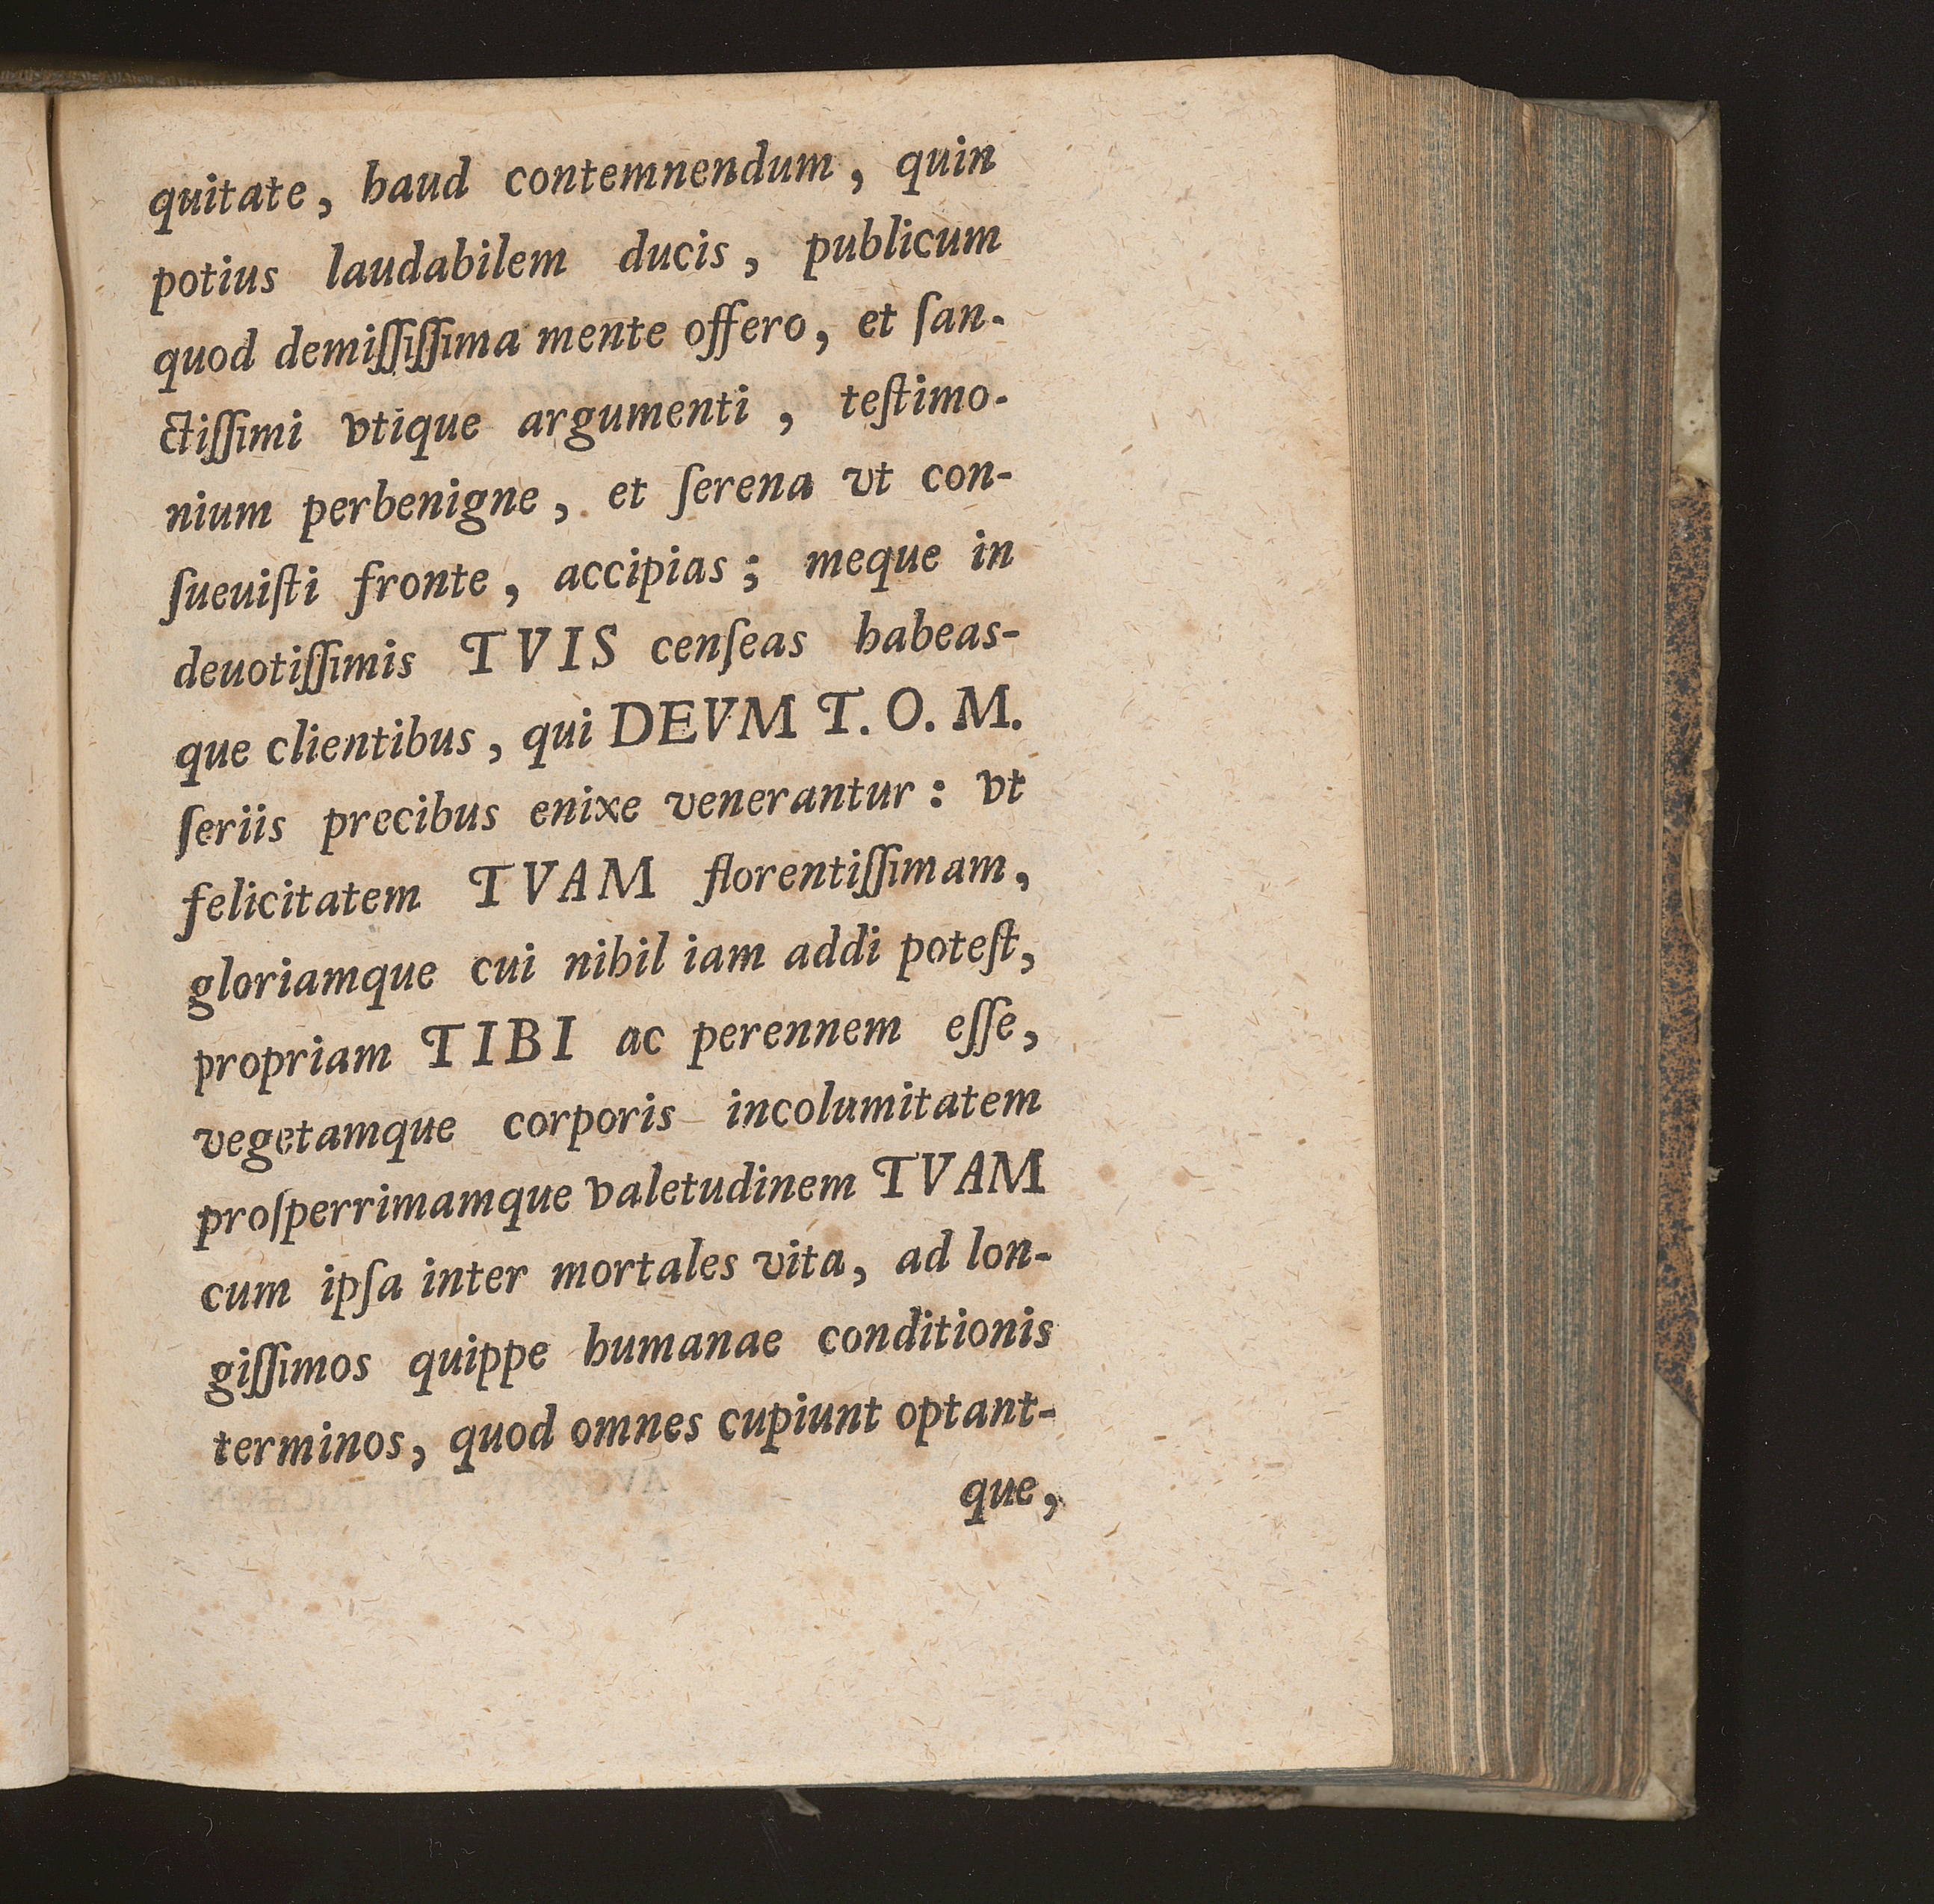 quitate, haud contemnendum, quin
potius laudabilem ducis, publicum
quod demiſſiſſima mente offero, et ſan-
ctiſſimi vtique argumenti, teſtimo-
nium perbenigne, et ſerena vt con-
ſueuiſti fronte, accipias; meque in
deuotiſſimis TVIS cenſeas habeas-
que clientibus, qui DEVM T. O. M.
ſeriis precibus enixe venerantur: vt
felicitatem TVAM florentiſſimam,
gloriamque cui nihil iam addi poteſt,
propriam TIBI ac perennem eſſe,
vegetamque corporis incolumitatem
proſperrimamque valetudinem TVAM
cum ipſa inter mortales vita, ad lon-
giſſimos quippe humanae conditionis
terminos, quod omnes cupiunt optant-
que,